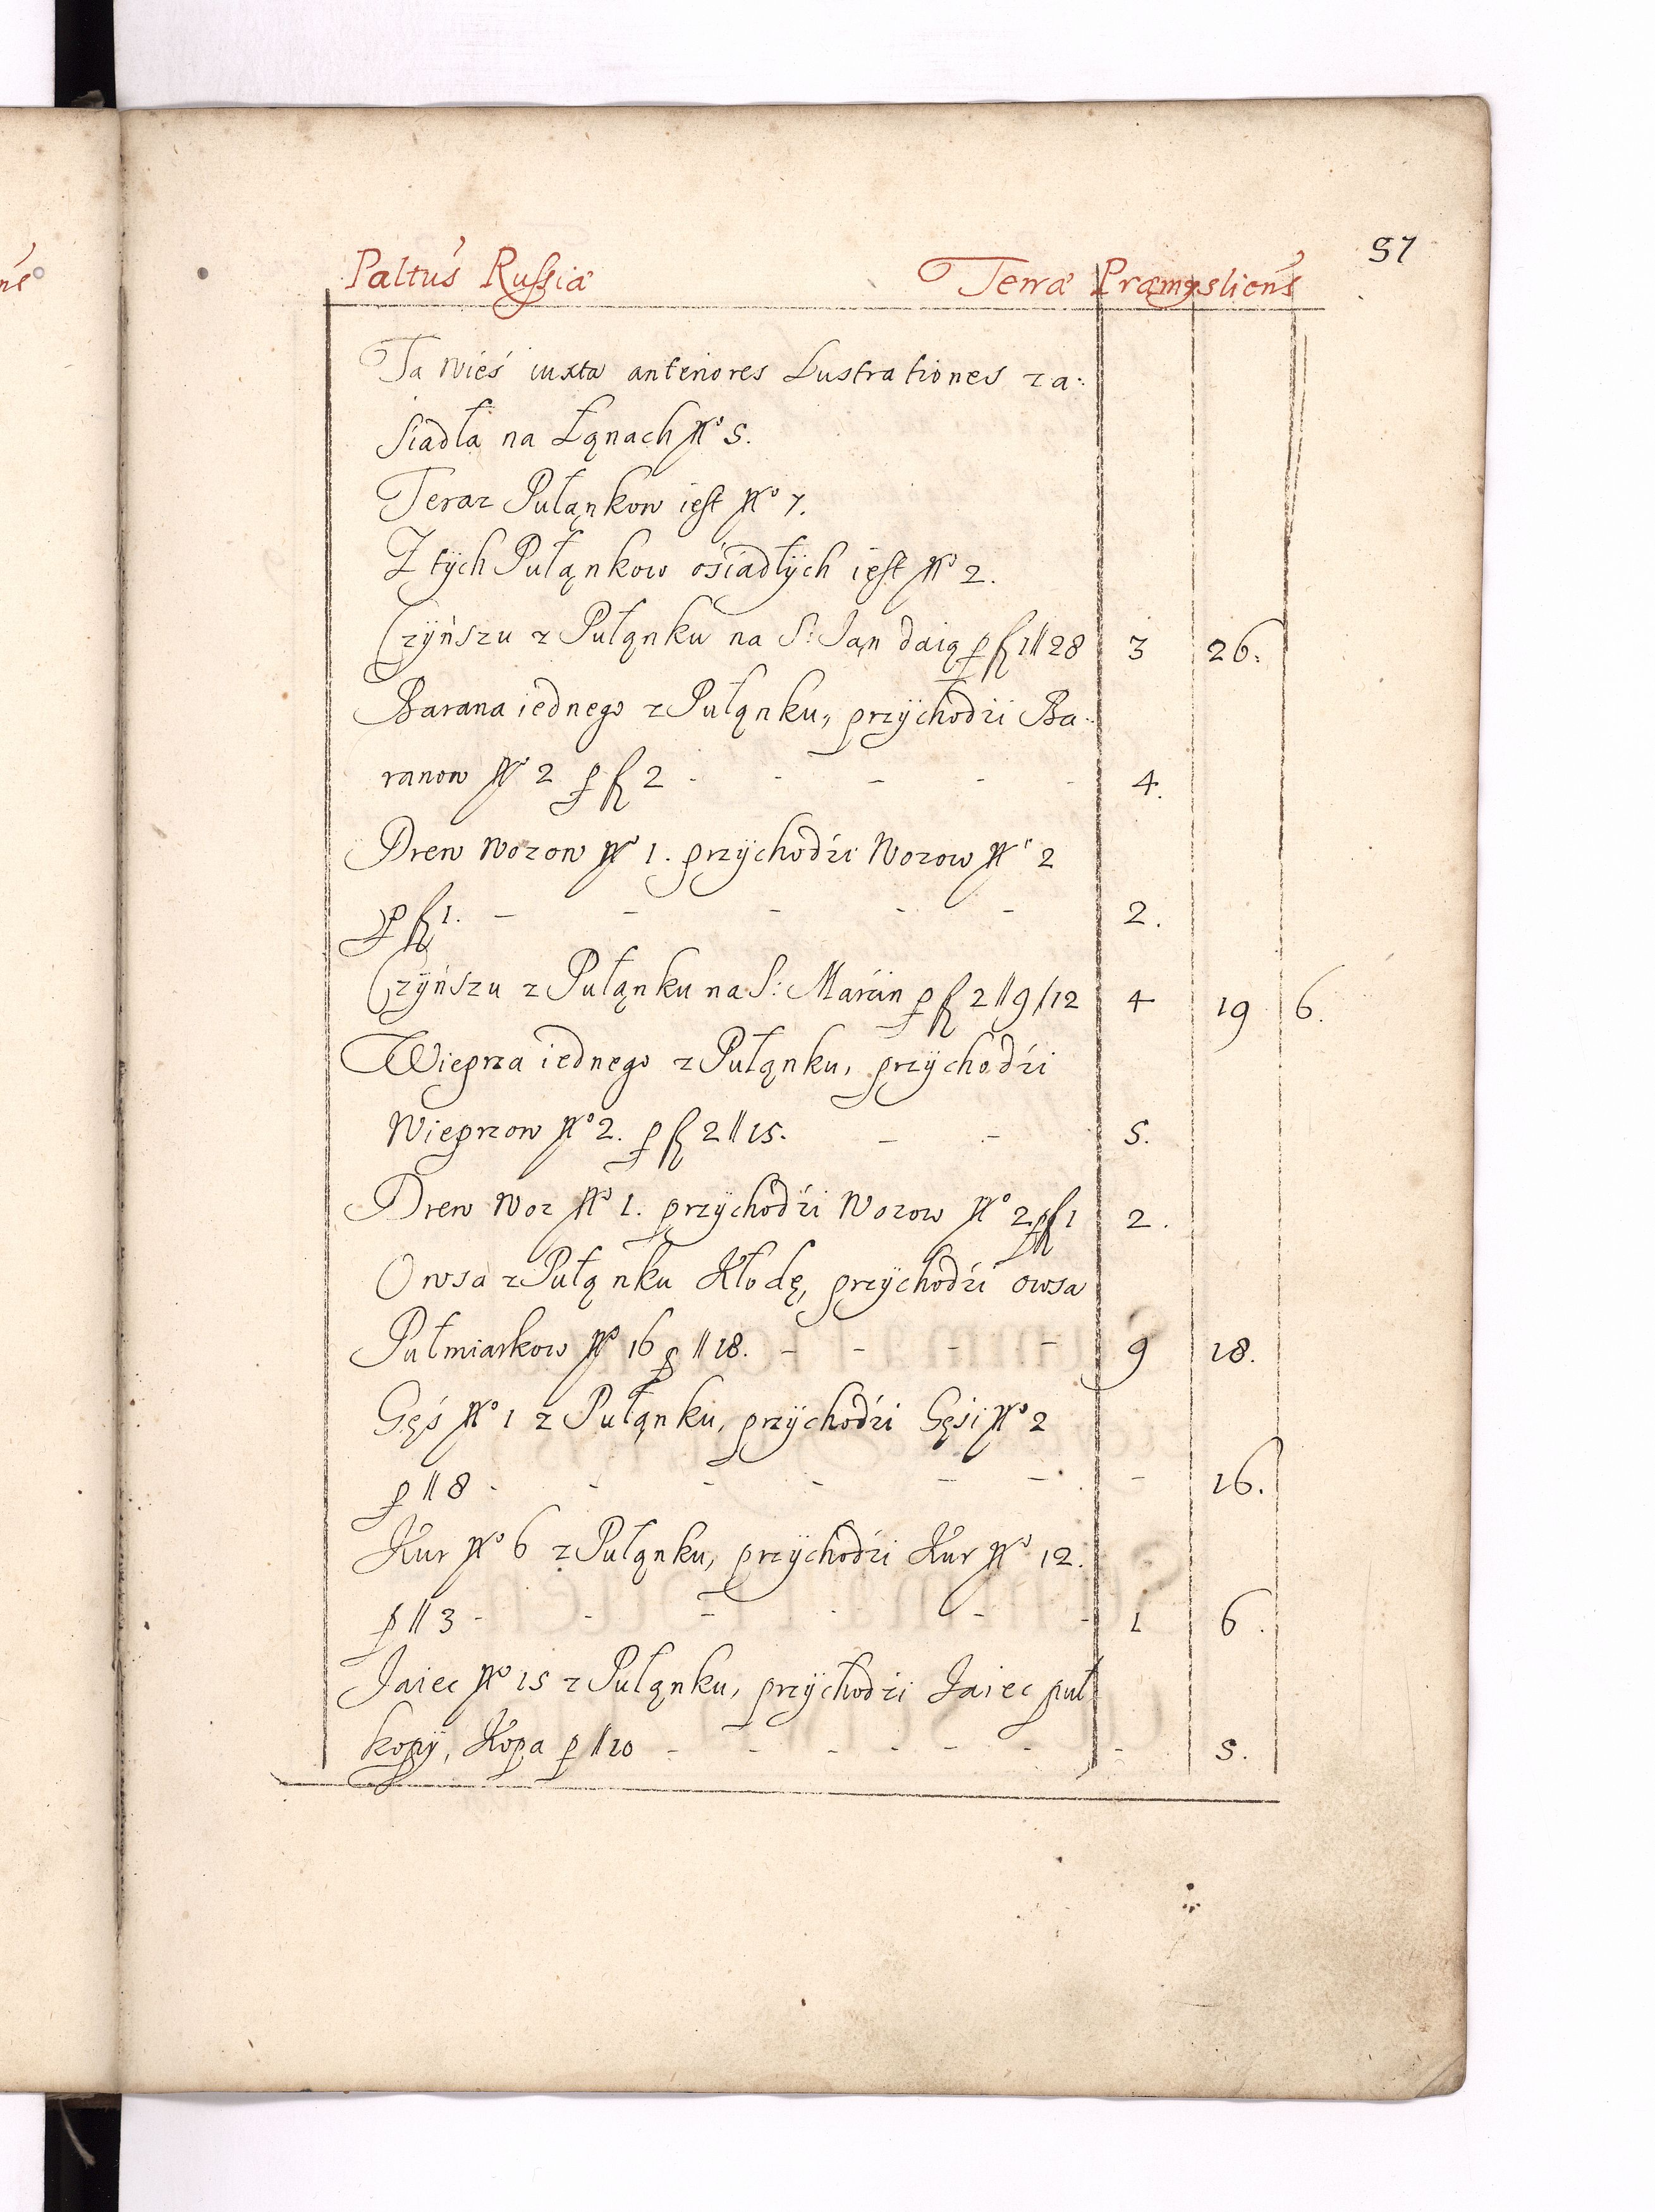 57
Paltus Russiæ Terræ Præmysliens
Ta wieś iuxta anteriores Lustrationes za:
siadła na Łąnach No 5.
Teraz Pułąnkow iest No 7.
Z tÿch Pułąnkow ośiadłÿch iest No 2.
Czÿńszu z Pułąnku na S: Jan daią p fl 1 // 28 3 26.
Barana iednego z Pułąnku, przÿchodzi Ba:
ranow No 2 p fl 2 - - - - - 4.
Drew wozow No 1. przÿchodźi wozow No 2
p fl 1. - - - - - 2.
Czÿńszu z Pułąnku na S: Marćin p fl 2 // 9 / 12 4 19 6.
Wieprza iednego z Pułąnku, przÿchodźi
wieprzow No 2. p fl 2 // 15. - - 5.
Drew woz No 1. przÿchodźi wozow No 2 p fl 1 2.
Owsa z Pułąnku Kłodę, przÿchodźi owsa
Pułmiarkow No 16 p // 18. - - - - 9 18.
Gęś No 1 z Pułąnku, przÿchodźi Gęśi No 2
p // 8 - - - - - - - 16.
Kur No 6 z Pułąnku, przÿchodźi Kur No 12.
p // 3 - - - - - - 1 6.
Jaiec No 15 z Pułąnku, przÿchodzi Jaiec puł
kopÿ, Kopa p // 10 - - - - - - - 5.